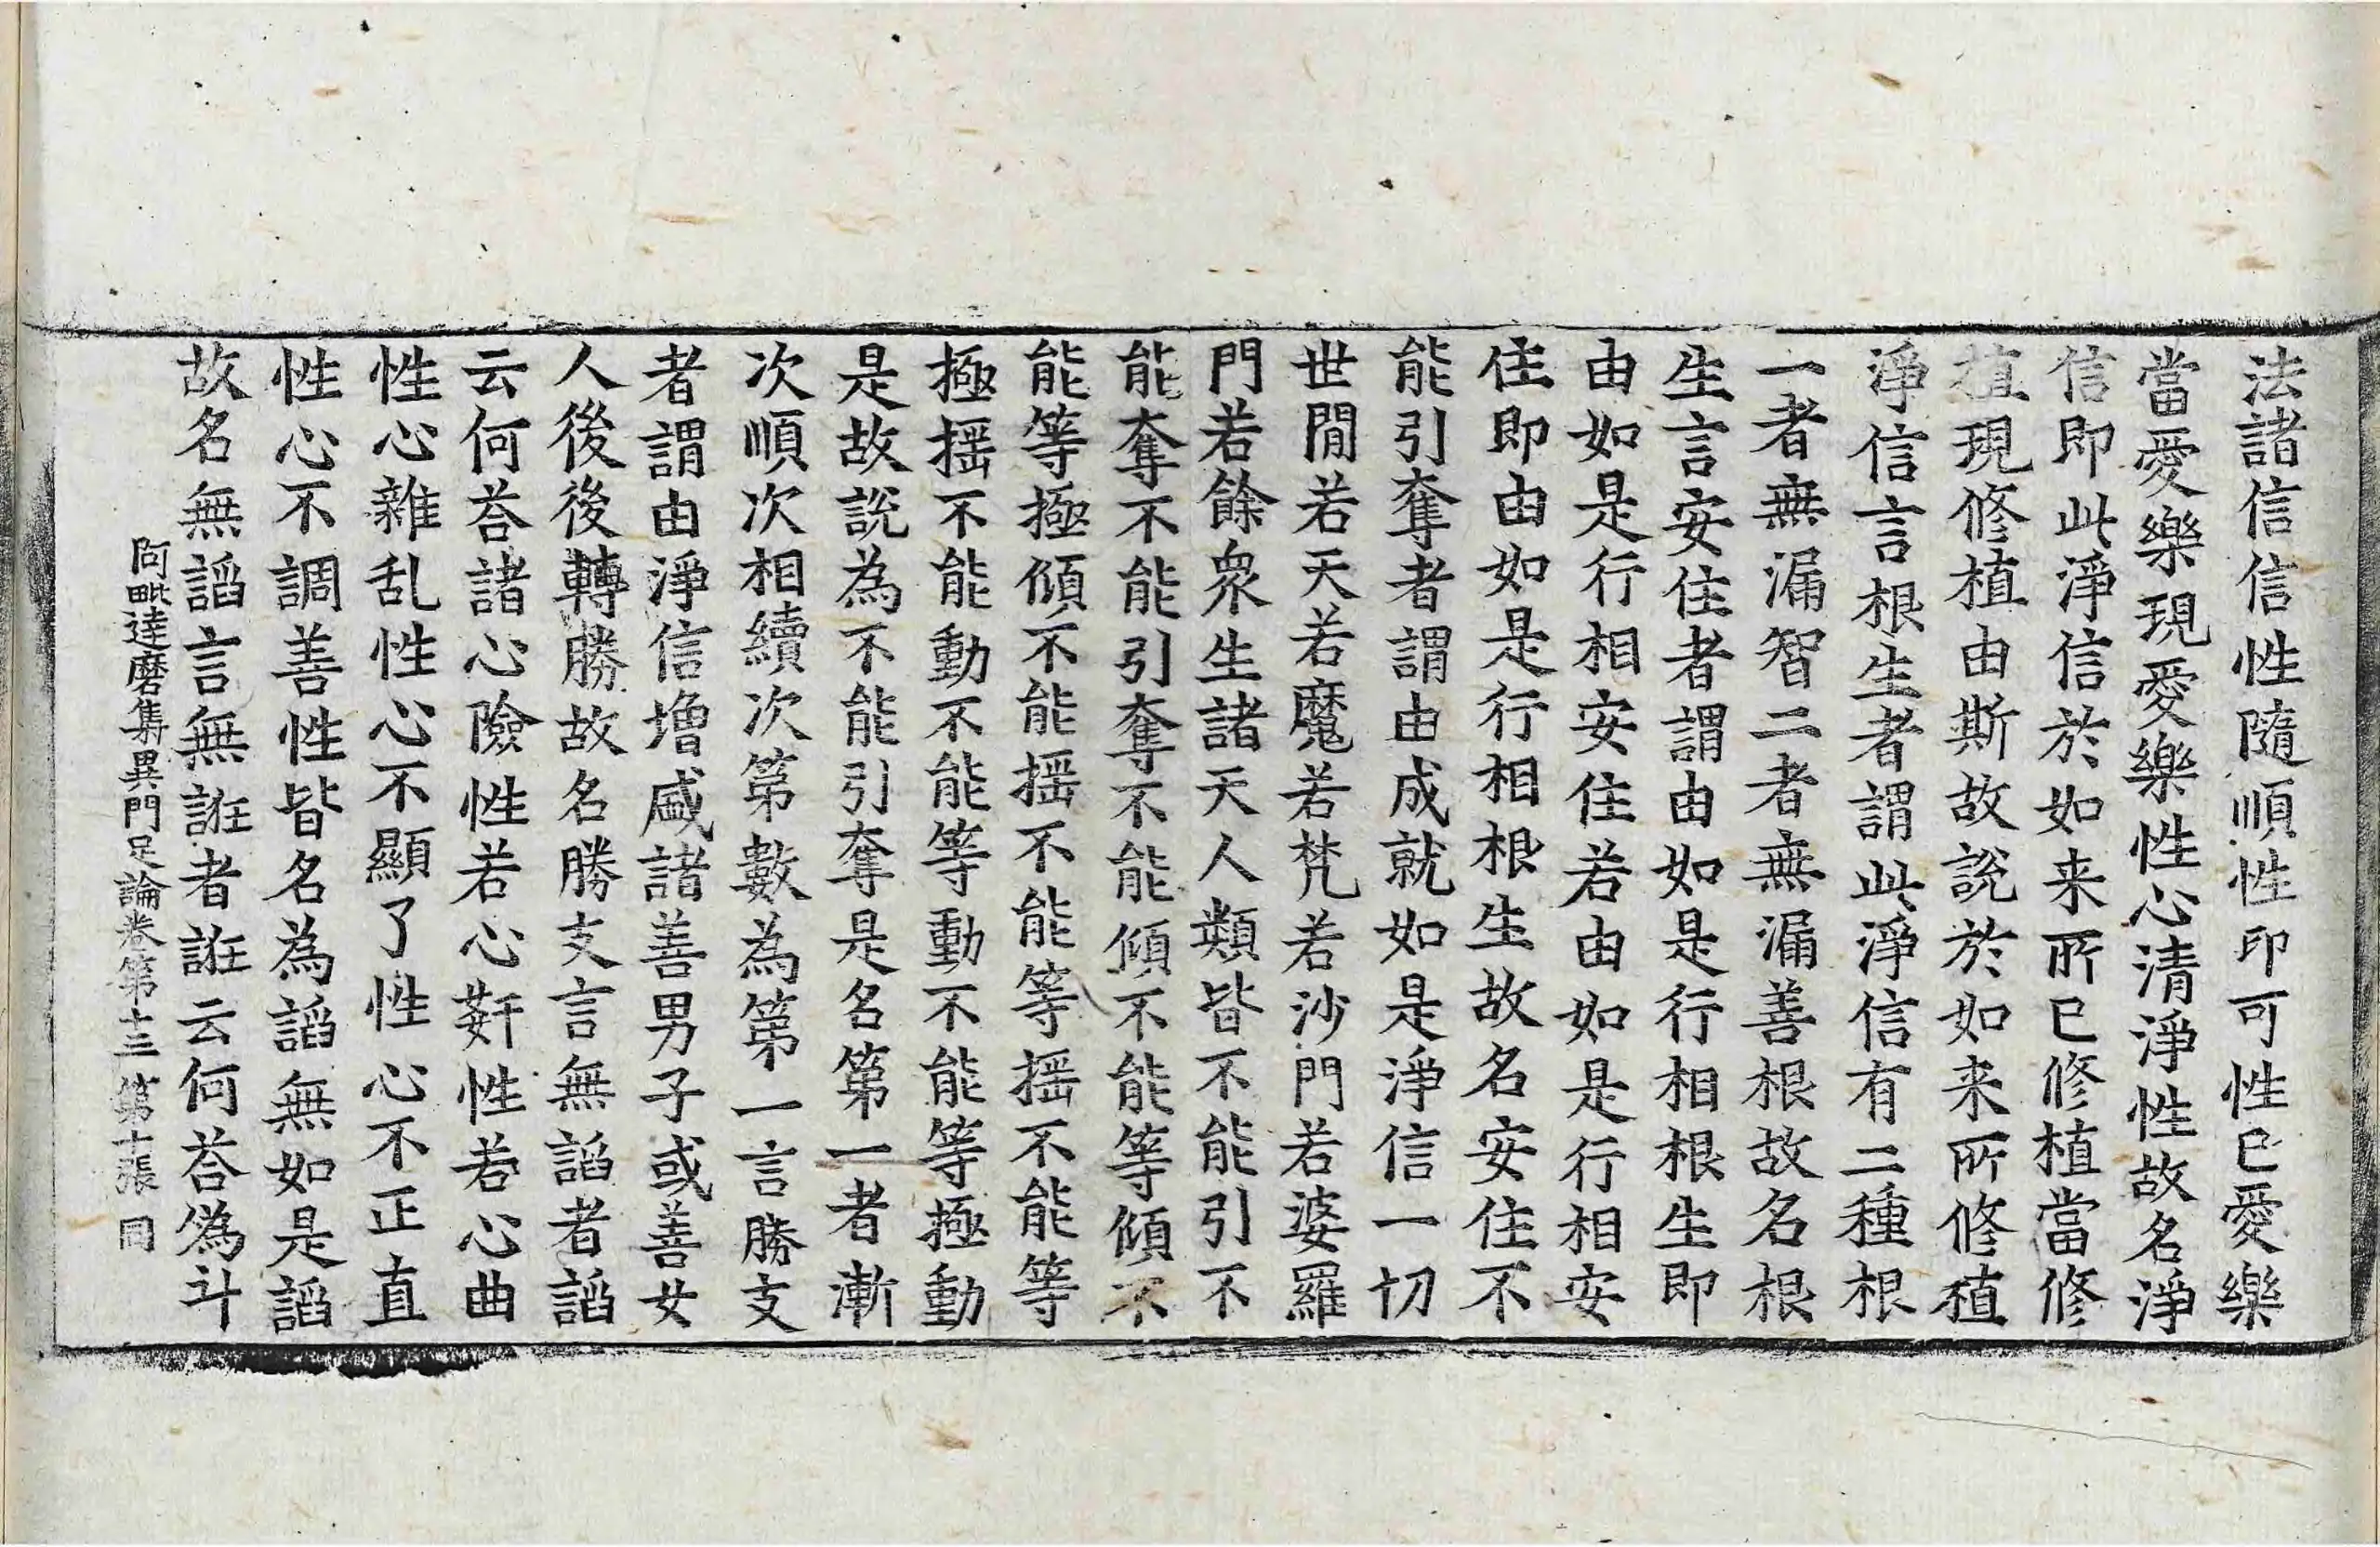 法諸信信性隨順性印可性已愛樂
當愛樂現愛樂性心清淨性故名淨
信即此淨信於如来所已修植當修
植現修植由斯故說於如来所修植
淨信言根生者謂此淨信有二種根
一者無漏智二者無漏善根故名根
生言安住者謂由如是行相根生即
由如是行相安住若由如是行相安
住即由如是行相根生故名安住不
能引奪者謂由成就如是淨信一切
世間若天若魔若梵若沙門若婆羅
門若餘衆生諸天人類皆不能引不
能奪不能引奪不能傾不能等傾不
能等極傾不能揺不能等揺不能等
極揺不能動不能等動不能等極動
是故說為不能引奪是名第一者漸
次順次相續次第數為第一言勝支
者謂由淨信增盛諸善男子或善女
人後後轉勝故名勝支言無謟者謟
云何荅諸心險性若心姧性若心曲
性心雜乱性心不顯了性心不正直
性心不調善性皆名為謟無如是謟
故名無謟言無誑者誑云何荅為斗
阿毗達磨集異門足論卷第十三 第十張 同